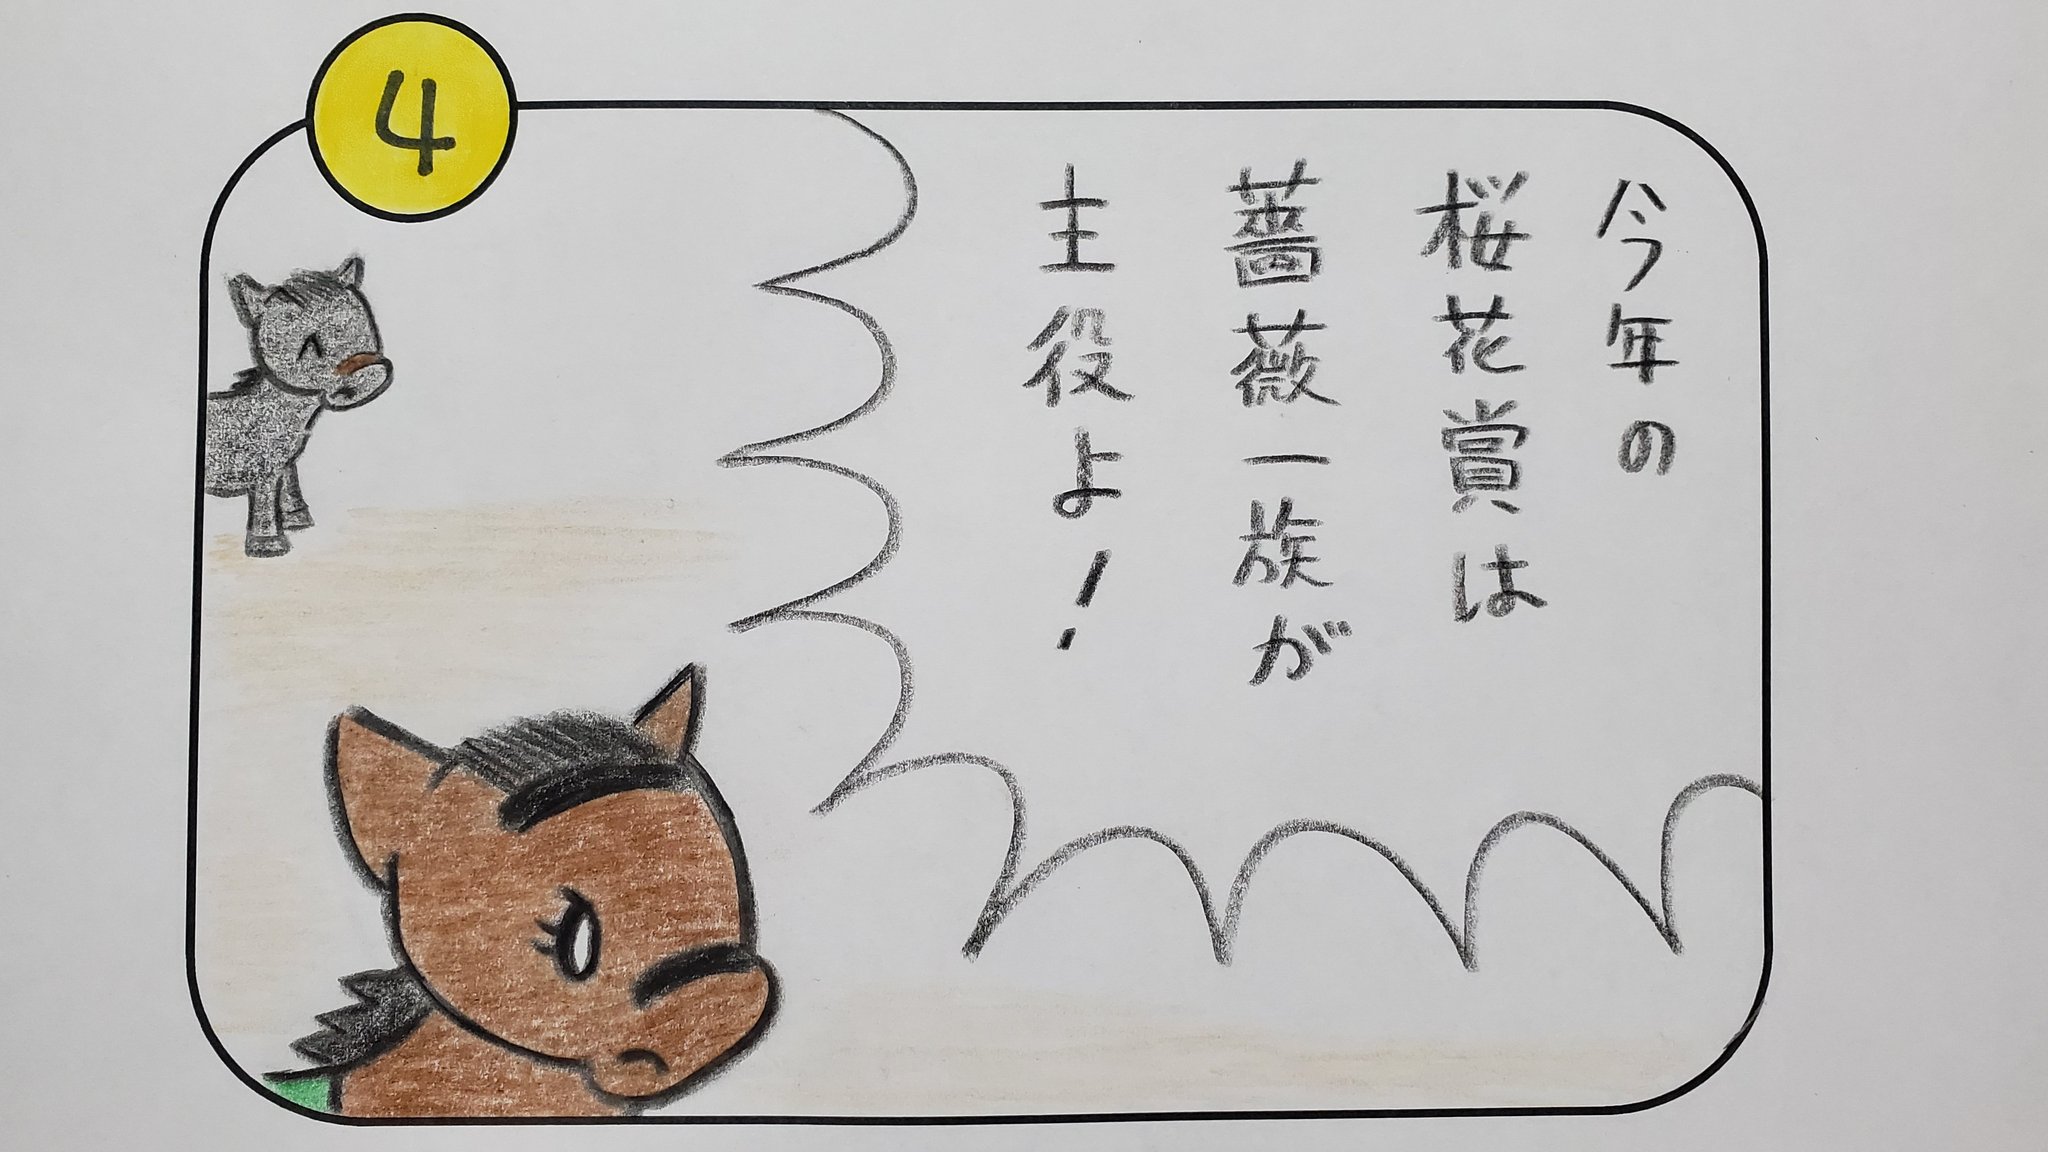 4
今年の
桜花賞は
薔薇一族が
主役よ！